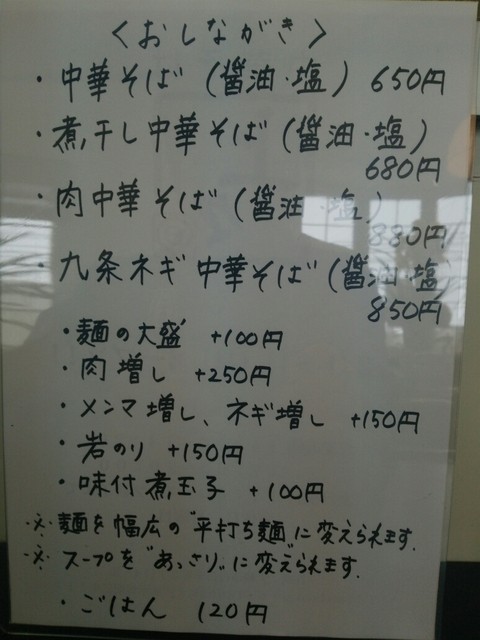 〈おしながき〉
・中華そば（醤油・塩）650円
・煮干し中華そば（醤油・塩）
680円
・肉中華そば（醤油・塩）
880円
・九条ネギ中華そば（醤油・塩
850円
・麺の大盛 +100円
・肉増し +250円
・メンマ増し、ネギ増し +150円
・岩のり +150円
・味付煮玉子 +100円
※麺を幅広の"平打ち麺"に変えられます.
※スープを"あっさり"に変えられます.
・ごはん 120円